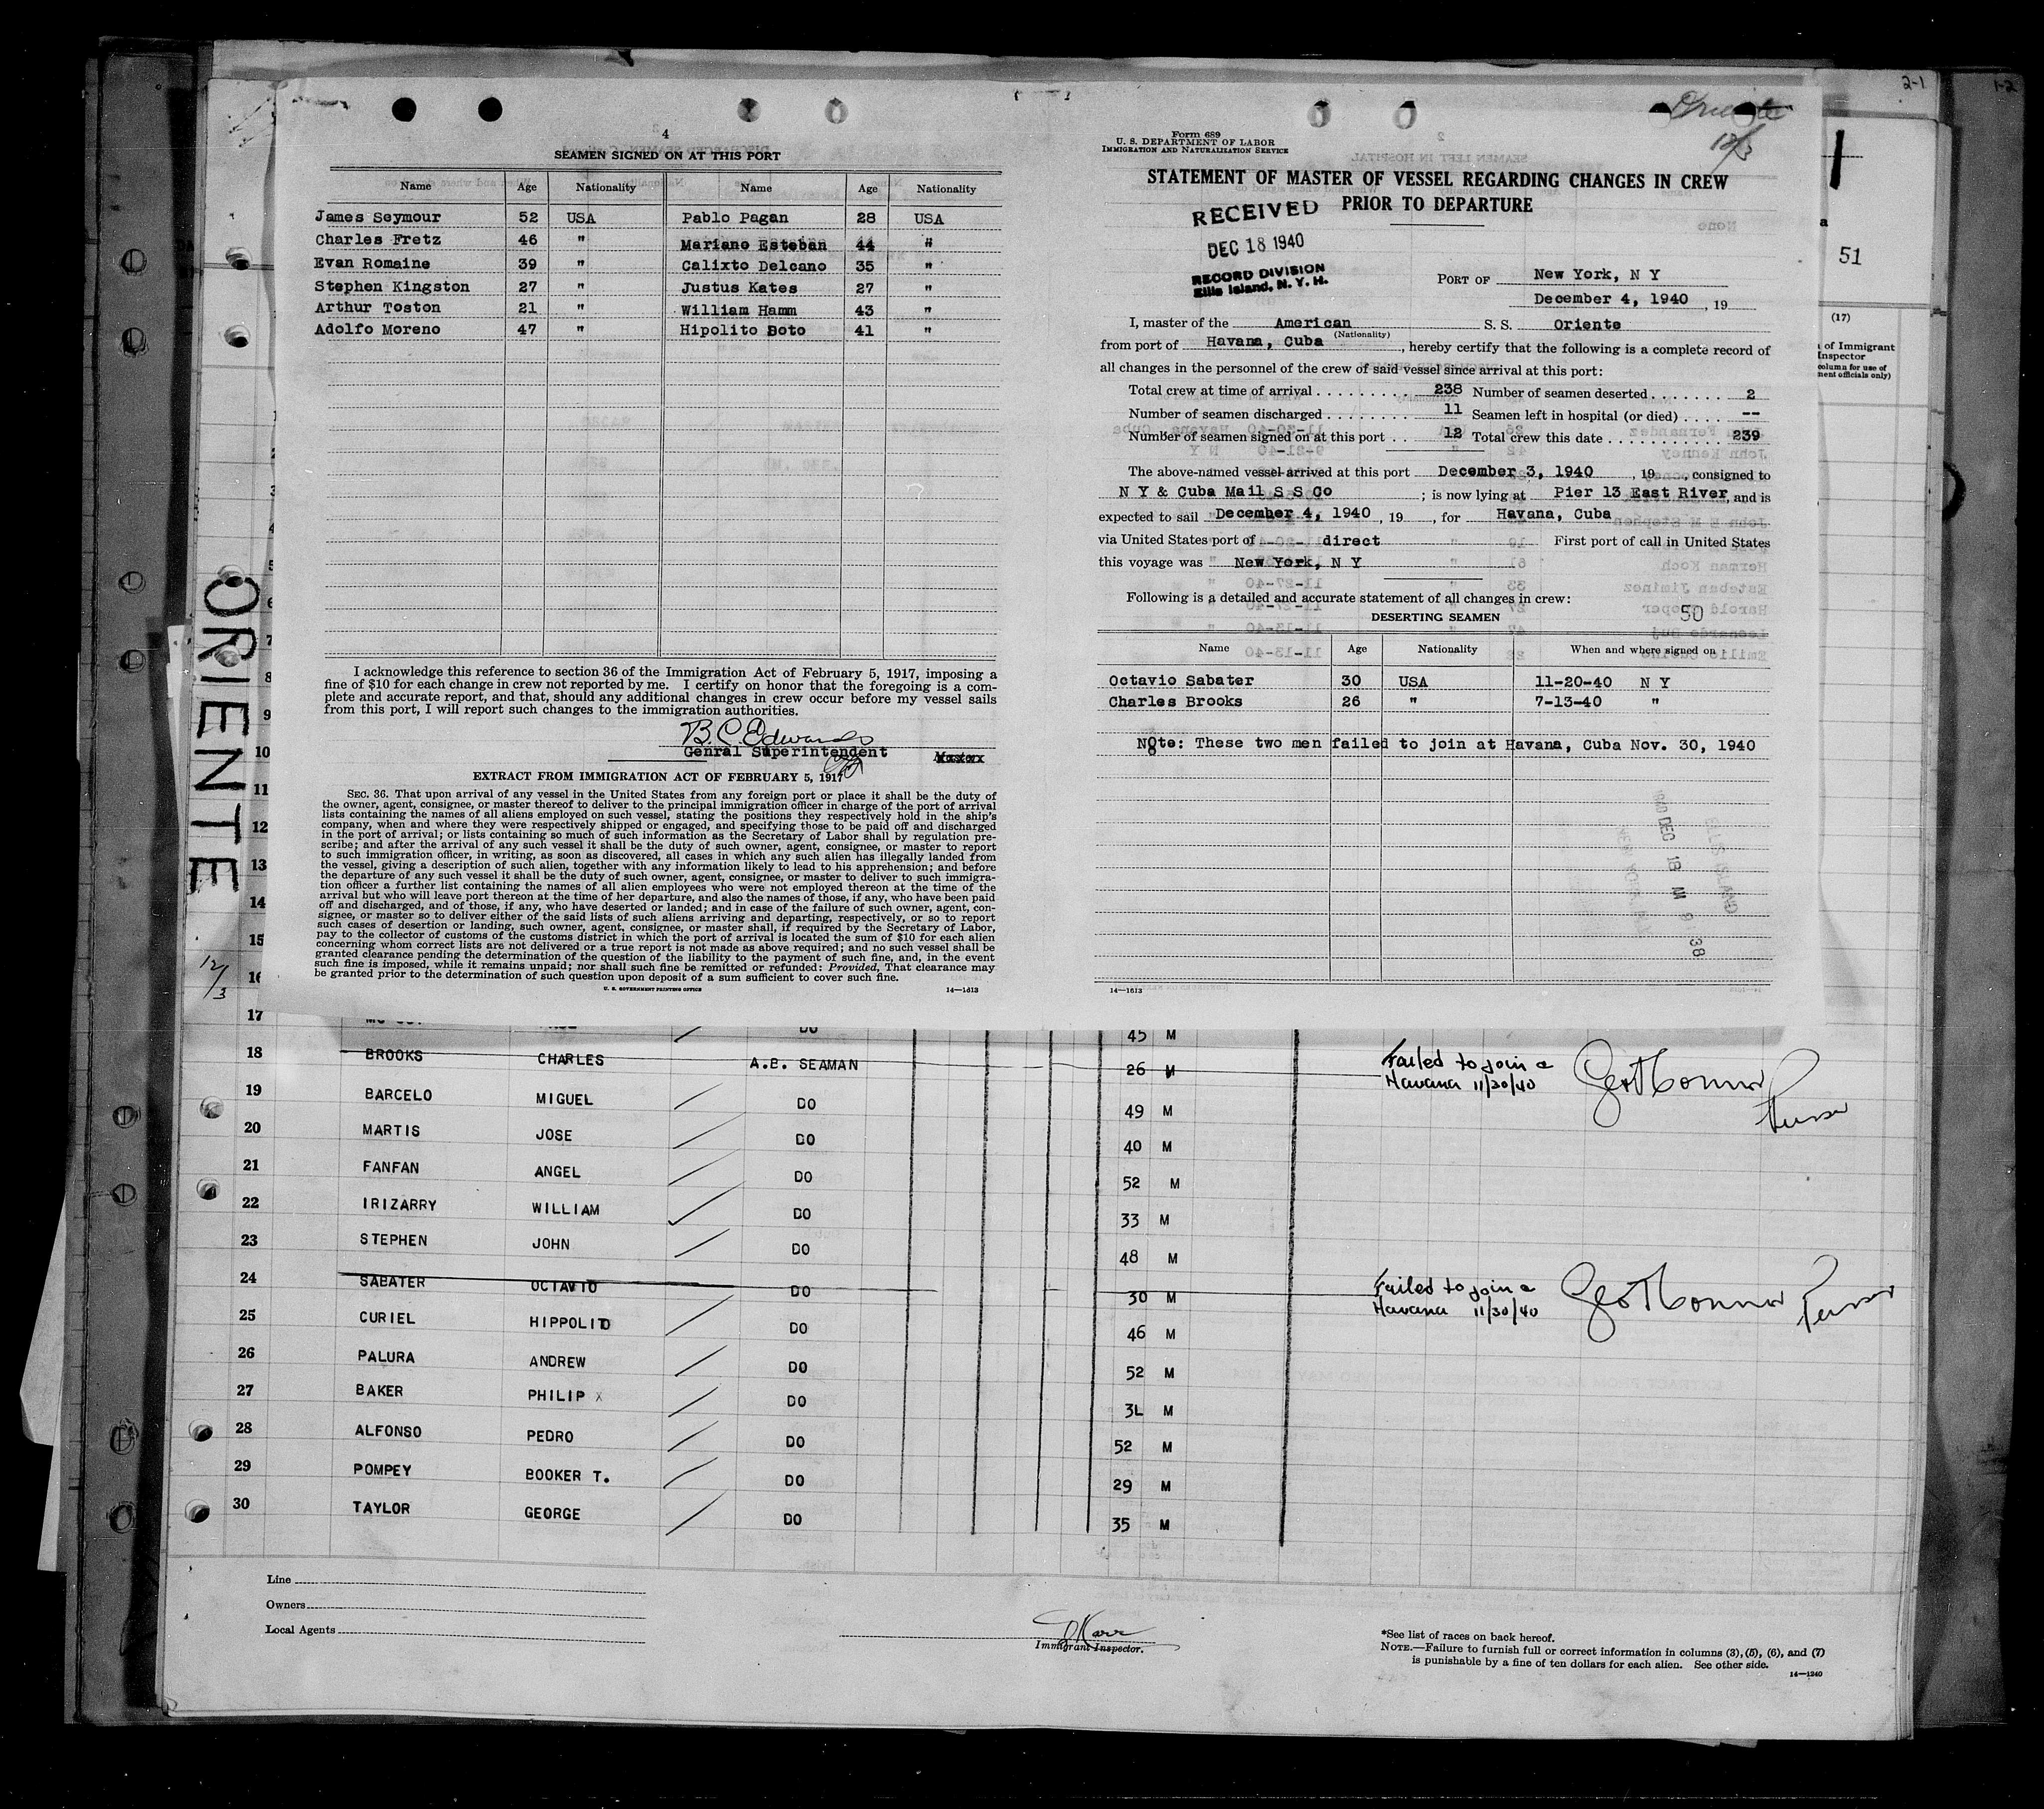 4
SEAMEN SIGNED ON AT THIS PORT
Name Age Nationality Name Age Nationality
James Seymour 52 USA Pablo Pagan 28 USA
Charles Fretz 46 " Mariano Esteban 44 "
Evan Romaine 39 " Calixto Delcano 35 "
Stephen Kingston 27 " Justus Kates 27 "
Arthur Toston 21 " William Hamm 43 "
Adolfo Moreno 47 " Hipolito Soto 41 "
I acknowledge this reference to section 36 of the Immigration Act of February 5, 1917, imposing a
fine of $10 for each change in crew not reported by me. I certify on honor that the foregoing is a com-
plete and accurate report, and that, should any additional changes in crew occur before my vessel sails
from this port, I will report such changes to the immigration authorities.
B. C. Edwards
Genral Superintendent
EXTRACT FROM IMMIGRATION ACT OF FEBRUARY 5, 1917
SEC. 36. That upon arrival of any vessel in the United States from any foreign port or place it shall be the duty of
the owner, agent, consignee, or master thereof to deliver to the principal immigration officer in charge of the port of arrival
lists containing the names of all aliens employed on such vessel, stating the positions they respectively hold in the ship's
company, when and where they were respectively shipped or engaged, and specifying those to be paid off and discharged
in the port of arrival; or lists containing so much of such information as the Secretary of Labor shall by regulation pre-
scribe; and after the arrival of any such vessel it shall be the duty of such owner, agent, consignee, or master to report
to such immigration officer, in writing, as soon as discovered, all cases in which any such alien has illegally landed from
the vessel, giving a description of such alien, together with any information likely to lead to his apprehension; and before
the departure of any such vessel it shall be the duty of such owner, agent, consignee, or master to deliver to such immigra-
tion officer a further list containing the names of all alien employees who were not employed thereon at the time of the
arrival but who will leave port thereon at the time of her departure, and also the names of those, if any, who have been paid
off and discharged, and of those, if any, who have deserted or landed; and in case of the failure of such owner, agent, con-
signee, or master so to deliver either of the said lists of such aliens arriving and departing, respectively, or so to report
such cases of desertion or landing, such owner, agent, consignee, or master shall, if required by the Secretary of Labor,
pay to the collector of customs of the customs district in which the port of arrival is located the sum of $10 for each alien
concerning whom correct lists are not delivered or a true report is not made as above required; and no such vessel shall be
granted clearance pending the determination of the question of the liability to the payment of such fine, and, in the event
such fine is imposed, while it remains unpaid; nor shall such fine be remitted or refunded: Provided, That clearance may
be granted prior to the determination of such question upon deposit of a sum sufficient to cover such fine.
U. S. GOVERNMENT PRINTING OFFICE 14—1613
Oriente
12/3
Form 689
U. S. DEPARTMENT OF LABOR
IMMIGRATION AND NATURALIZATION SERVICE
STATEMENT OF MASTER OF VESSEL REGARDING CHANGES IN CREW
PRIOR TO DEPARTURE
RECEIVED
DEC 18 1940
RECORD DIVISION
Ellis Island, N. Y. H.
PORT OF New York, N Y
December 4, 1940, 19
I, master of the American S. S. Oriente
(Nationality)
from port of Havana, Cuba, hereby certify that the following is a complete record of
all changes in the personnel of the crew of said vessel since arrival at this port:
Total crew at time of arrival 238 Number of seamen deserted 2
Number of seamen discharged 11 Seamen left in hospital (or died) --
Number of seamen signed on at this port 12 Total crew this date 239
The above-named vessel arrived at this port December 3, 1940, 19, consigned to
N Y & Cuba Mail S S Co; is now lying at Pier 13 East River, and is
expected to sail December 4, 1940, 19, for Havana, Cuba
via United States port of direct First port of call in United States
this voyage was New York, N Y
Following is a detailed and accurate statement of all changes in crew:
50
DESERTING SEAMEN
Name Age Nationality When and where signed on
Octavio Sabater 30 USA 11-20-40 N Y
Charles Brooks 26 " 7-13-40 "
Note: These two men failed to join at Havana, Cuba Nov. 30, 1940
14—1613
2-1
1-2
51
(17)
of Immigrant
Inspector
column for use of
ment officials only)
ORIENTE
12/3
8
9
10
11
12
13
14
15
16
17 DO 45 M
18 BROOKS CHARLES A.B. SEAMAN 26 M Failed to join a
Havana 11/30/40 Purser
19 BARCELO MIGUEL DO 49 M
20 MARTIS JOSE DO 40 M
21 FANFAN ANGEL DO 52 M
22 IRIZARRY WILLIAM DO 33 M
23 STEPHEN JOHN DO 48 M
24 SABATER OCTAVIO DO 30 M Failed to join a
Havana 11/30/40 Purser
25 CURIEL HIPPOLITO DO 46 M
26 PALURA ANDREW DO 52 M
27 BAKER PHILIP DO 3L M
28 ALFONSO PEDRO DO 52 M
29 POMPEY BOOKER T. DO 29 M
30 TAYLOR GEORGE DO 35 M
Line
Owners
Local Agents
Immigrant Inspector.
*See list of races on back hereof.
NOTE.—Failure to furnish full or correct information in columns (3), (5), (6), and (7)
is punishable by a fine of ten dollars for each alien. See other side.
14—1240